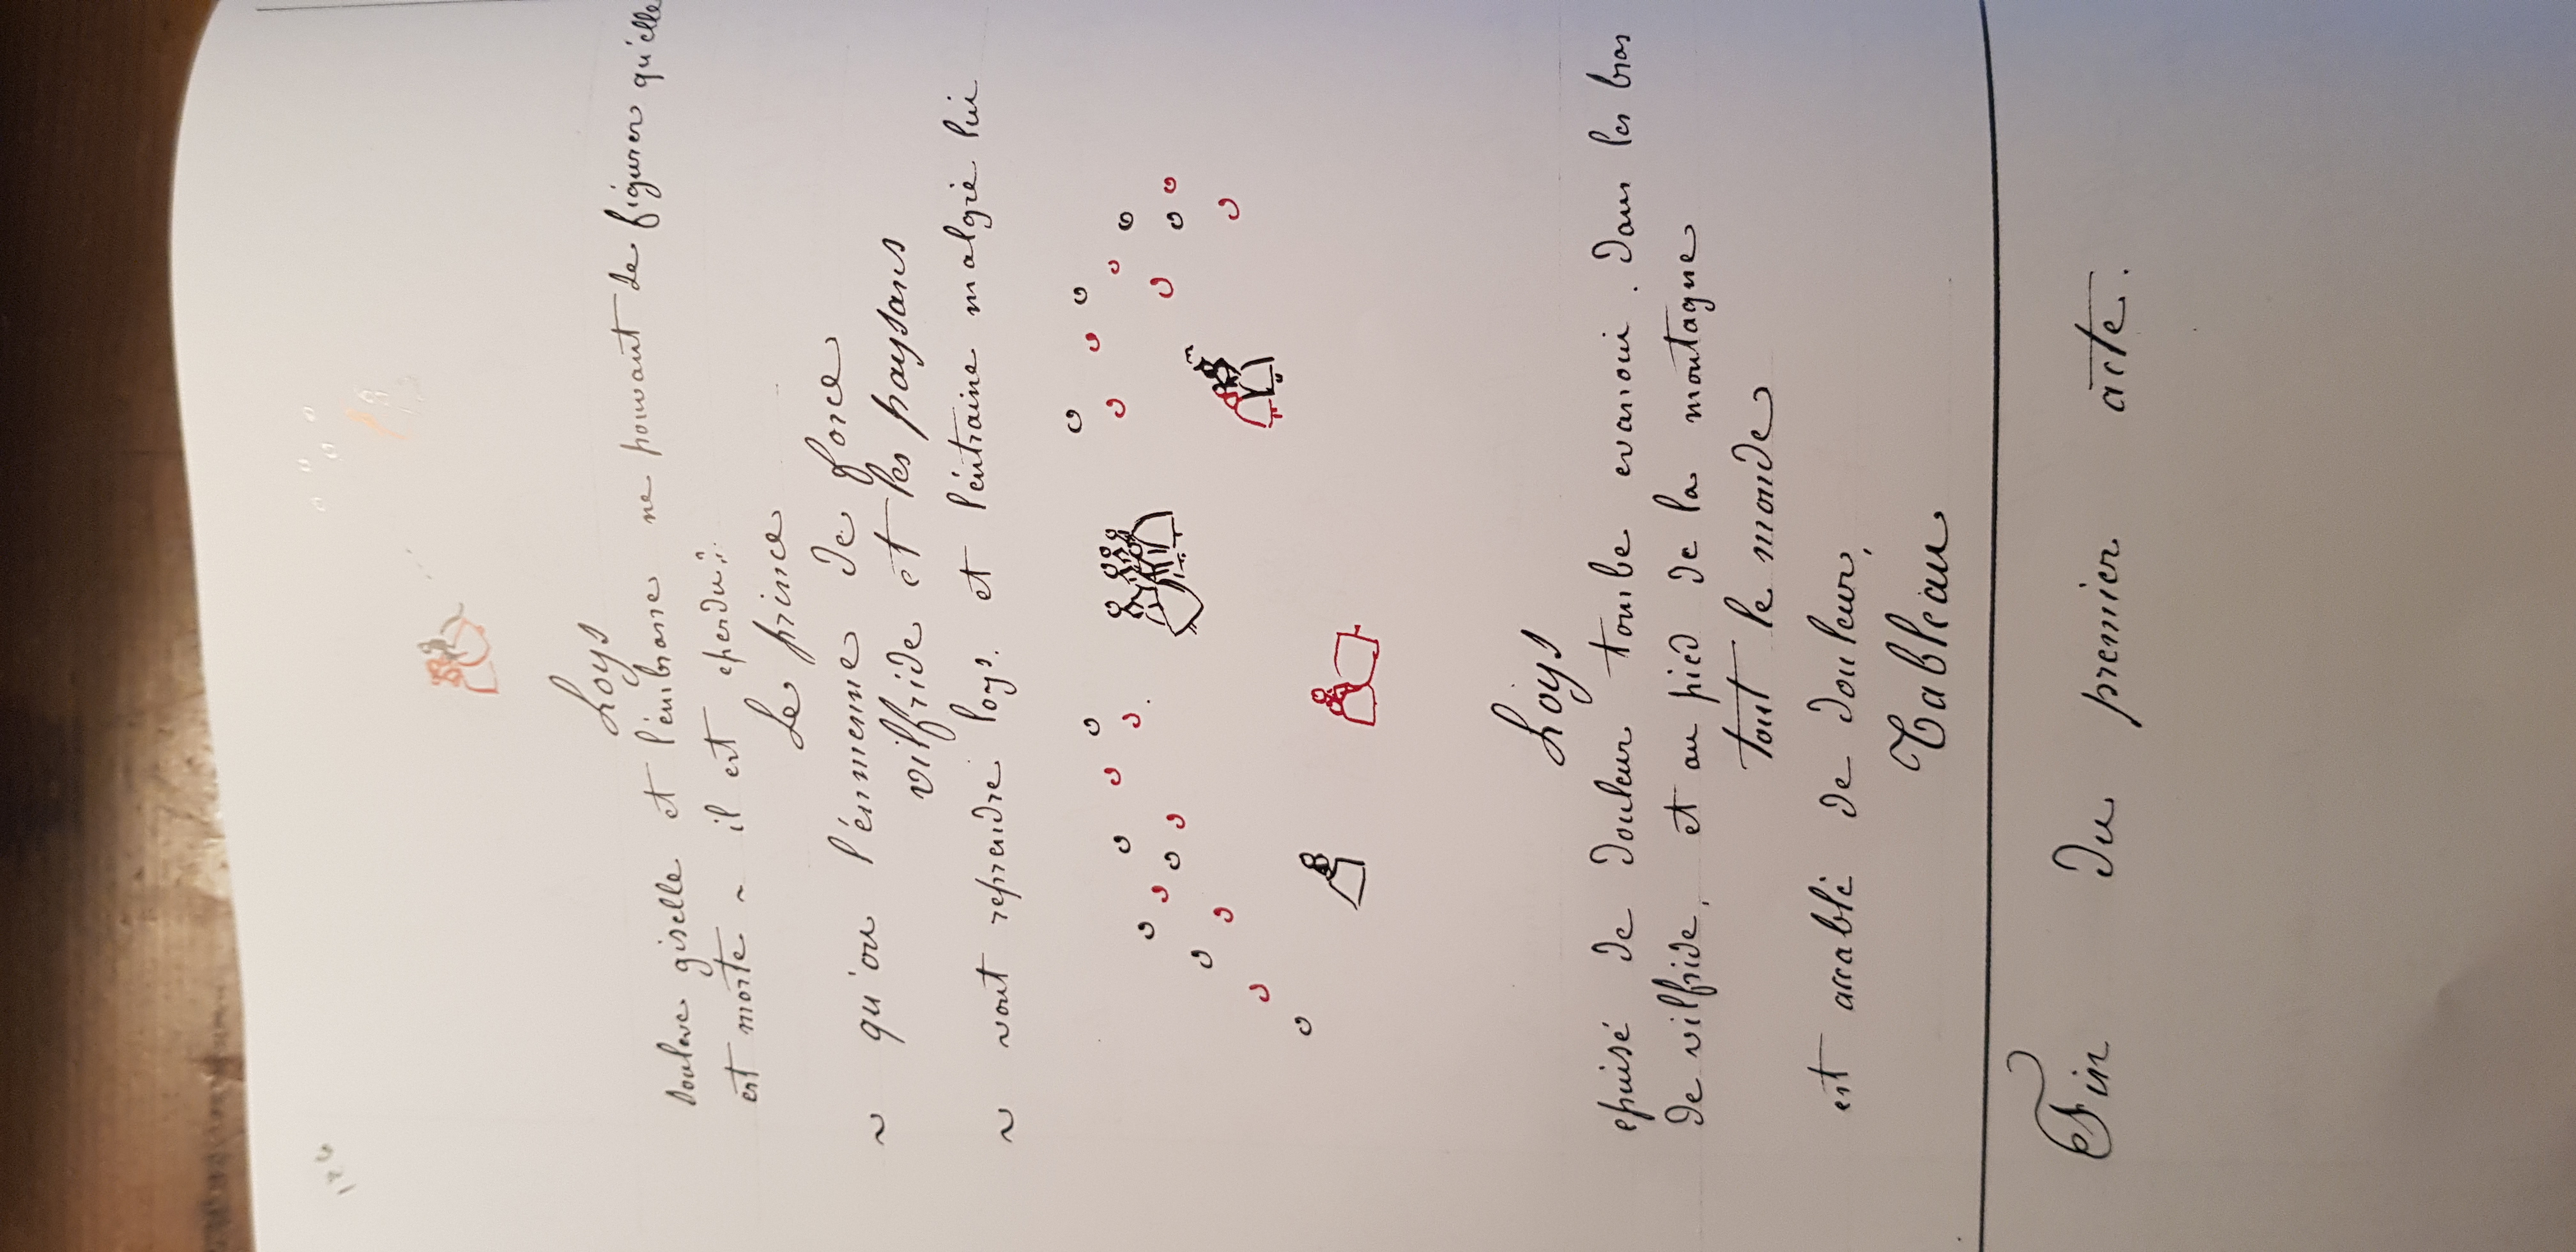 126
Loys
Soulève giselle et l'embrasse ne pouvant se figurer qu'elle
est morte ~ il est eperdu..
Le prince
~ qu'on l'emmenne de force
vilfride et les paysans
~ vont reprendre loys. et l'entraine malgré lui
Loys
epuisé de douleur tombe evanoui. dans les bras
de vilfride, et au pied de la montagne
tout le monde
est accablé de douleur,
Tableau
Fin du premier acte.